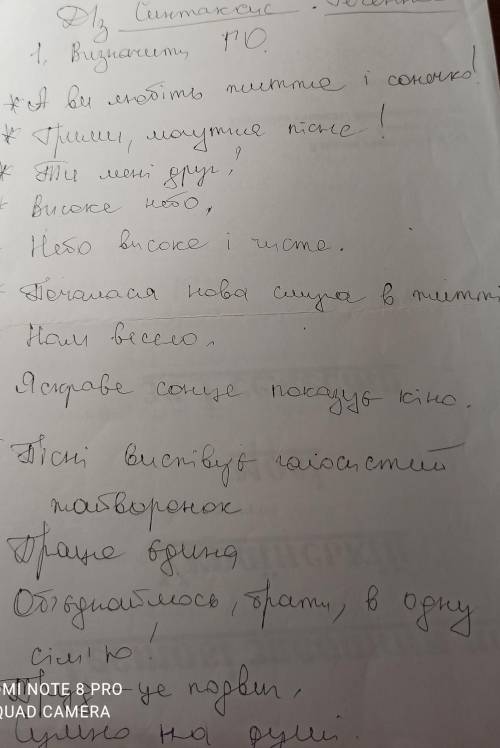 Д/з Синтаксис. Речення
1. Визначити ГО.
* А ви любіть життя і сонечко!
* Грими, могутня пісне!
* Ти мені друг!
* Високе небо.
- Небо високе і чисте.
- Почалася нова смуга в житті
Нам весело.
Яскраве сонце показує кіно.
Пісні виспівує голосистий
жайворонок
Праце єдина
Об'єднаймось, брати, в одну
сім'ю!
це подвиг.
Сумно на душі.
OMI NOTE 8 PRO
QUAD CAMERA